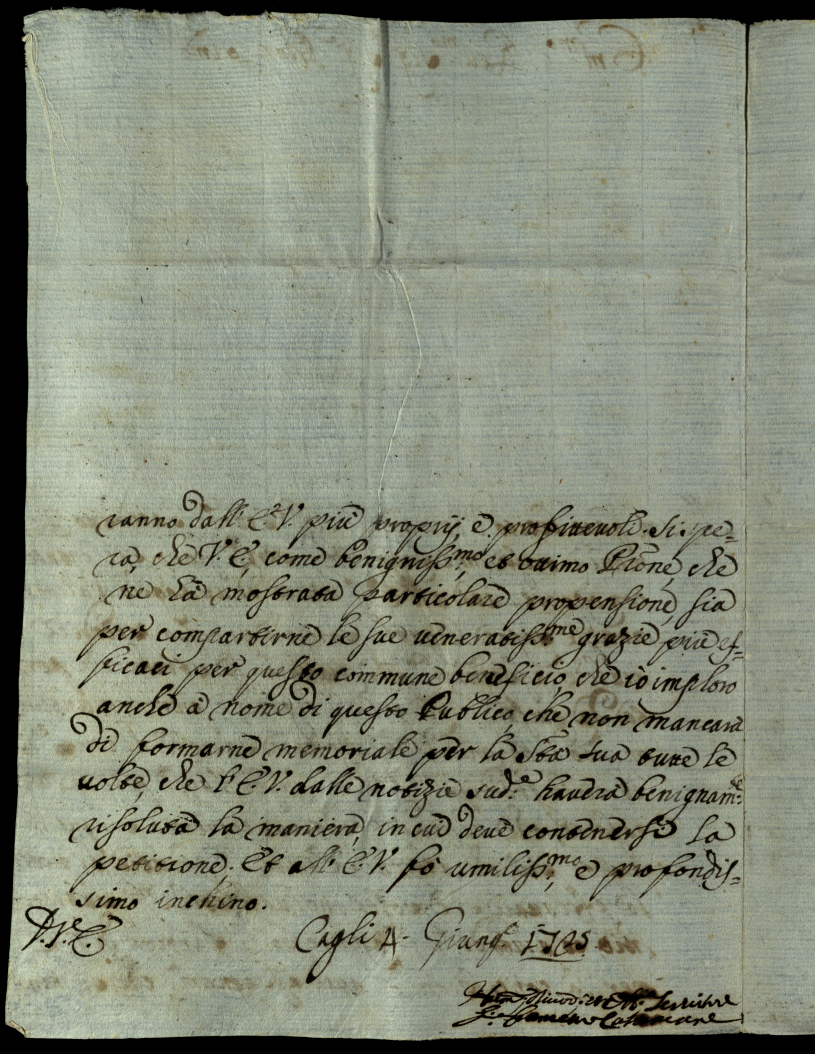 ranno dall' E. V. più proprij, e profittevoli. Si spe-
ra, che V. E. come benigniss.mo et ottimo Prone, che
ne hà mostrata particolare propensione, sia
per compartirne le sue veneratiss.me grazie più ef-
ficaci per questo commune beneficio, che io imploro
anche à nome di questo Publico, che non mancarà
di formarne memoriale per la Stà Sua tutte le
volte, che l'E. V. dalle notizie sud.e haverà benignam.te
risoluta la maniera, in cui deve contenersi la
petitione. Et all' E. V. fò umiliss.mo, e profondis-
simo inchino.
D. V. E. Cagli 4. Giung.o 1705
Hum.o Divot.